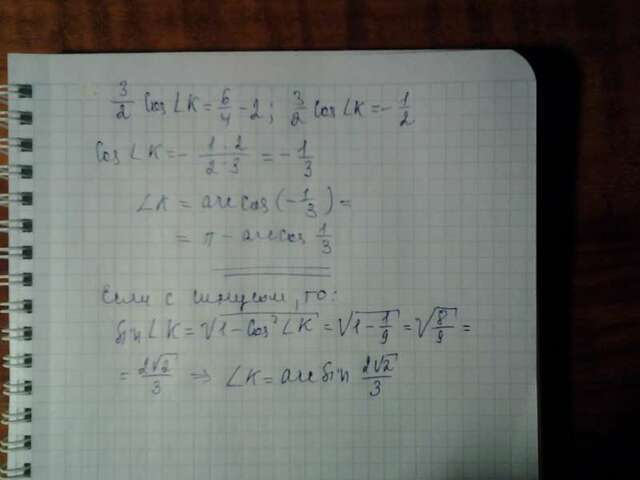 3/2 cos ∠K = 6/4 - 2; 3/2 cos ∠K = - 1/2
Cos ∠K = - 1·2/2·3 = - 1/3
∠K = arccos (- 1/3) =
= π - arccos 1/3
Если с синусом, то:
sin ∠K = √1 - cos² ∠K = √1 - 1/9 = √8/9 =
= 2√2/3 ⇒ ∠K = arcsin 2√2/3